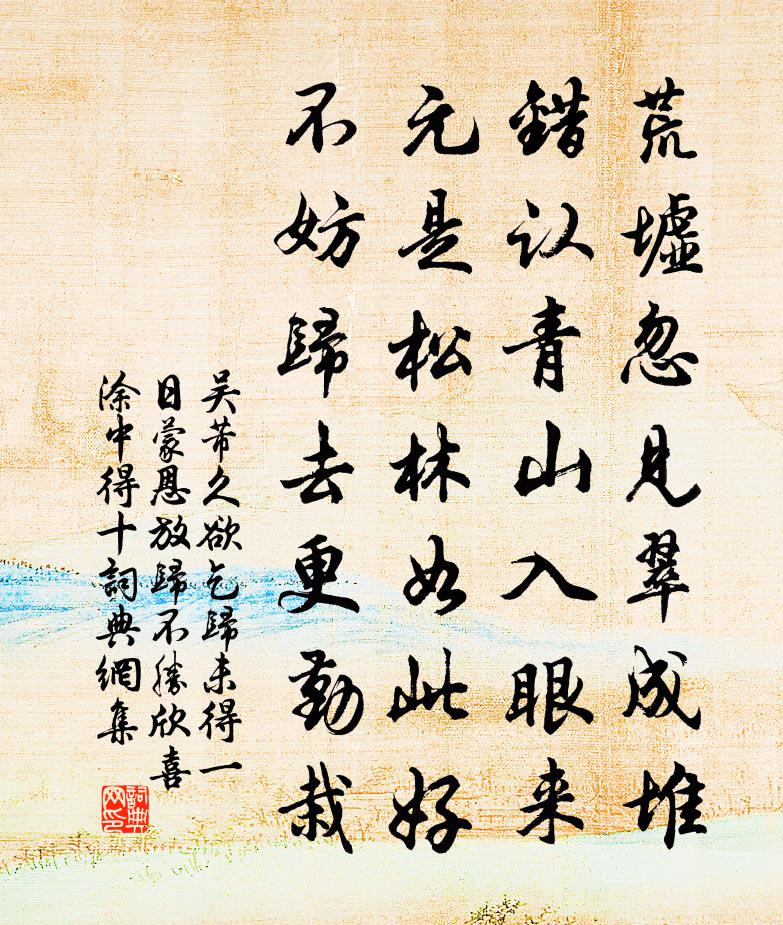 荒墟忽見翠成堆
錯认青山入眼来
元是松林如此好
不妨歸去更勤栽
吴芾久欲乞歸未得一
日蒙恩放歸不勝欣喜
涂中得十詞典網集
詞典
网印